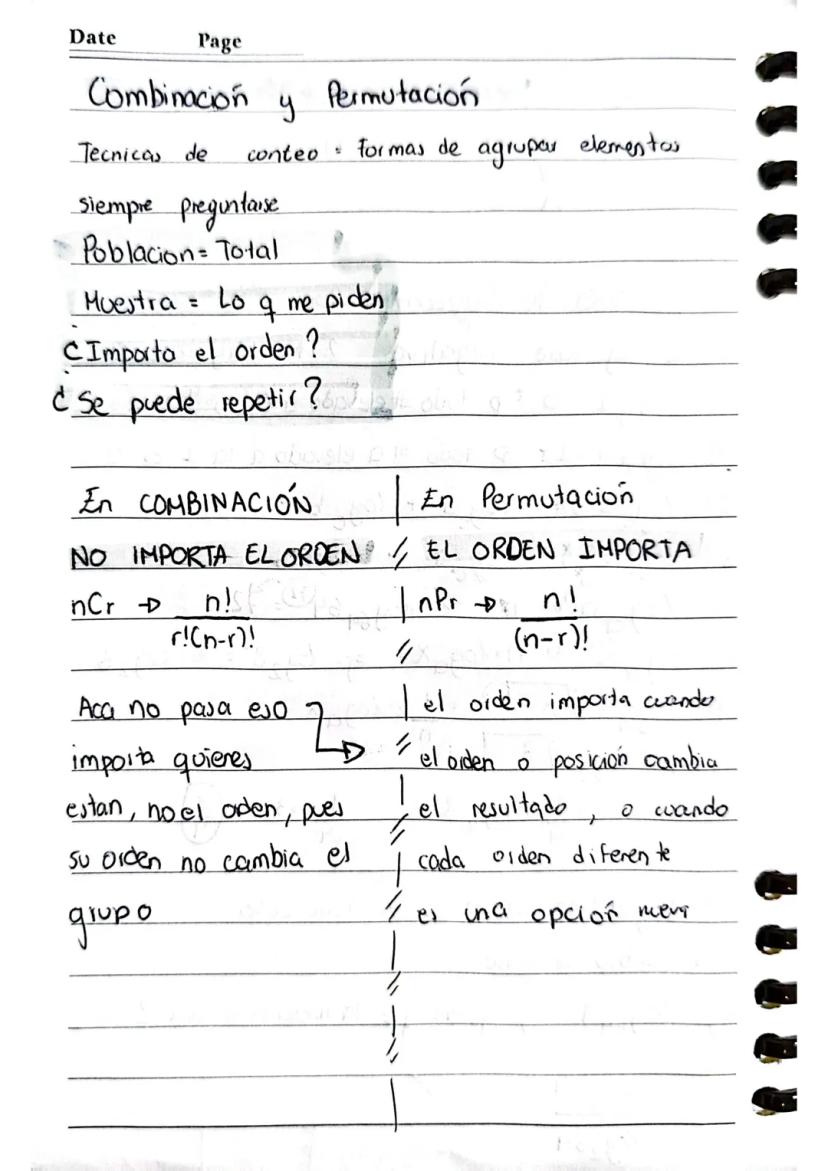 Date Page
Combinación y Permutación
Tecnicas de conteo = formas de agrupar elementos
siempre preguntarse
Poblacion = Total
Muestra = Lo q me piden
¿Importa el orden?
¿Se puede repetir?
En COMBINACIÓN
NO IMPORTA EL ORDEN
nCr → n!
r!(n-r)!
Aca no pasa eso
importa quienes
estan, no el orden, pues
su orden no cambia el
grupo
En Permutación
EL ORDEN IMPORTA
nPr → n!
(n-r)!
el orden importa cuando
el orden o posición cambia
el resultado, o cuando
cada orden diferente
es una opción nueva